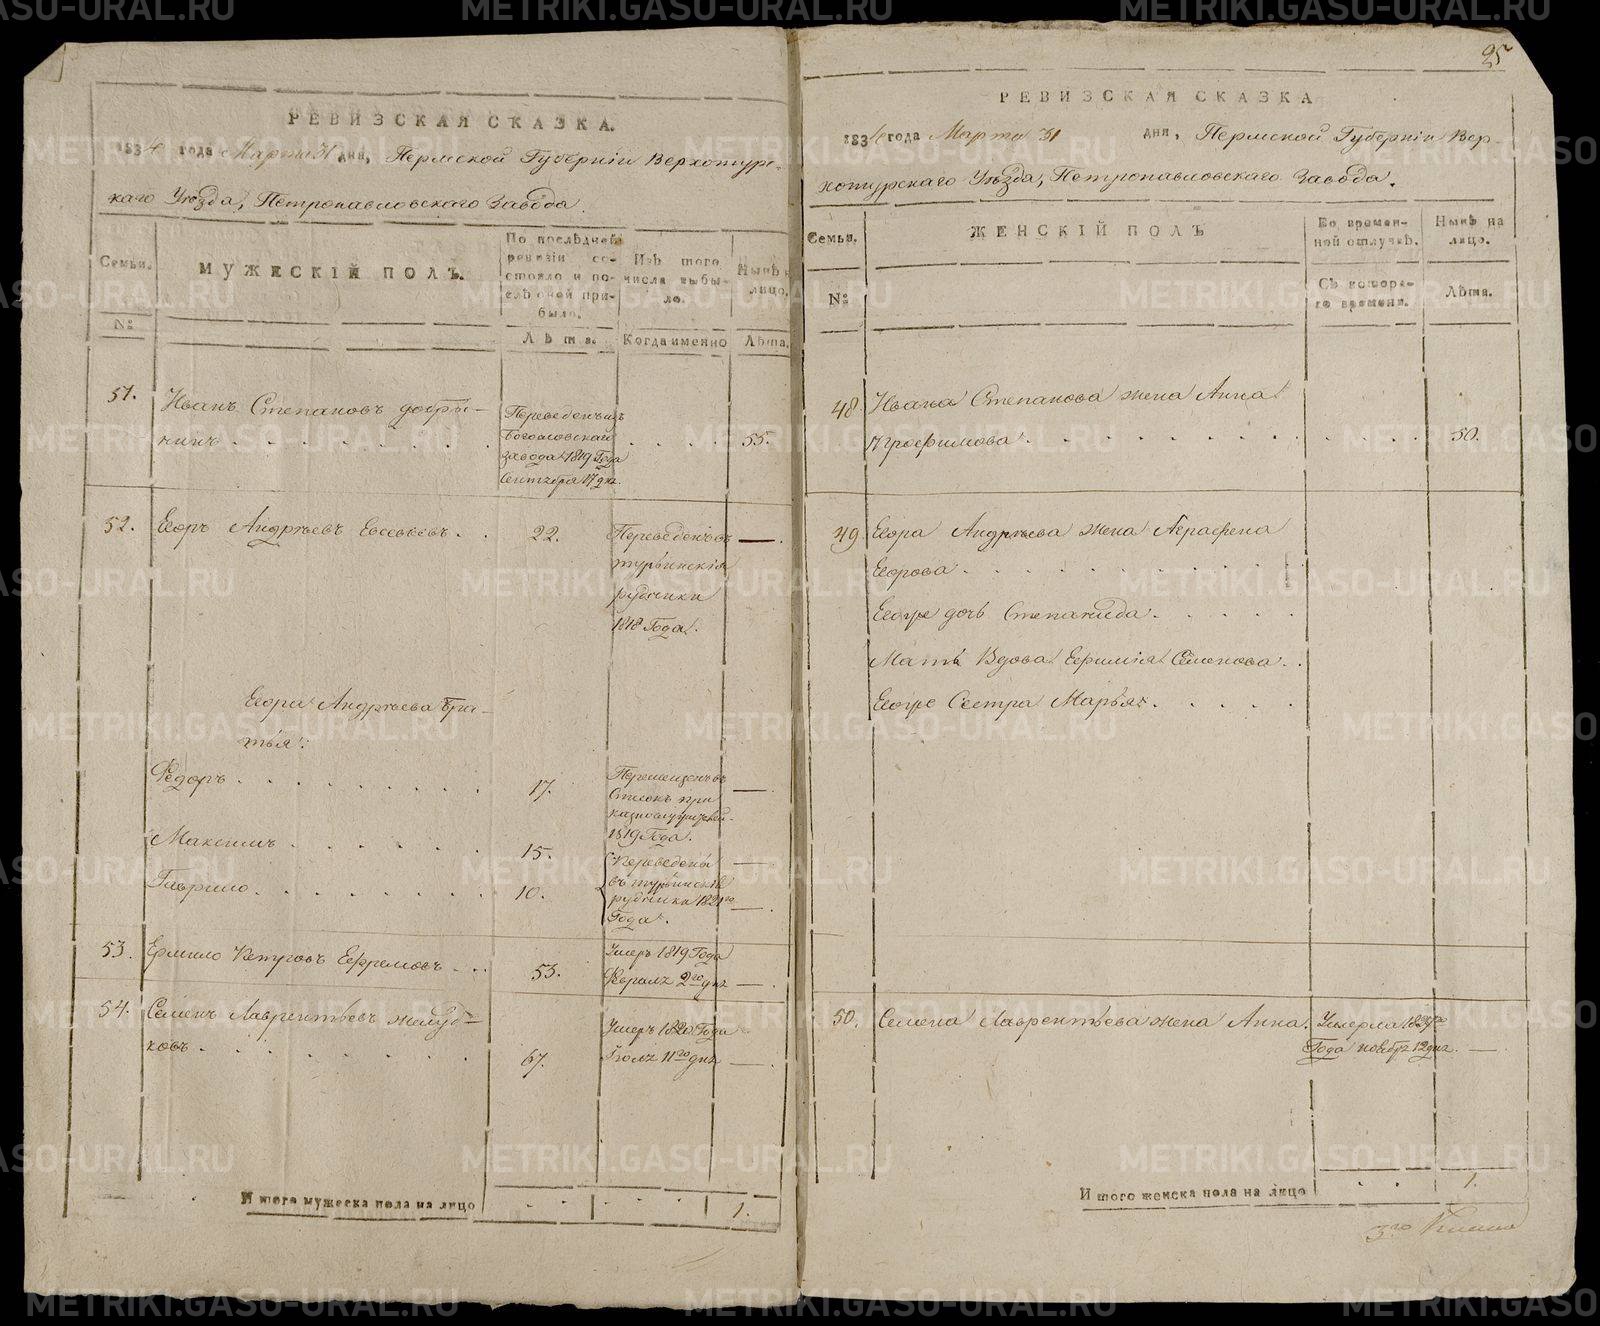 РЕВИЗСКАЯ СКАЗКА.
1834 года Марта 31 дня, Пермской Губерніи Верхотурс-
каго Уѣзда, Петропавловскаго Завода
Семьи.
№
МУЖЕСКІЙ ПОЛЪ.
По послѣдней ревизіи состояло и послѣ оной прибыло.
Лѣта.
Изъ того числа выбыло.
Когда именно
Нынѣ на лицо.
Лѣта.
51. Иванъ Степановъ добры-
нинъ . . . . . . . . 55.
Переведенъ изъ
Богословскаго
завода 1819 Года
Сентября 17 дня.
52. Егоръ Андрѣевъ Евсевьевъ. . 22. Переведенъ въ — .
турьинскія
рудники
1818 Года.
Егора Андрѣева бра-
тья:
Федоръ . . . . . . . . 17. Перемещенъ въ —
Списокъ при
казнослужителей
1819 Года.
Максимъ . . . . . . 15. Переведены —
Гаврило . . . . . . . 10. въ турьинскія
рудники 1821го — .
Года.
53. Ермило Петровъ Ефремовъ . . . 53. Умеръ 1819 Года
Февраля 2го дня — .
54. Семенъ Лаврентьевъ желуд-
ковъ . . . . . . . . 67. Умеръ 1820 Года
Іюля 11го дня — .
И того мужеска пола на лицо . . 1.
25
РЕВИЗСКАЯ СКАЗКА
1834 года Марта 31 дня, Пермской Губерніи Вер-
хотурскаго Уѣзда, Петропавловскаго Завода.
Семьи.
№
ЖЕНСКІЙ ПОЛЪ
Во временной отлучкѣ.
Съ которого времени.
Нынѣ на лицо.
Лѣта.
48 Ивана Степанова жена Анна
Трофимова . . . . . . . . . . . 50.
49. Егора Андрѣева жена Аграфена
Егорова . . . . . . . .
Егоре дочь Степанида . . . . .
Мать Вдова Ефимія Семенова . .
Егоре Сестра Марья . . . . .
50. Семена Лаврентьева жена Анна. Умерла
Года ноября 12 дня. — .
И того женска пола на лицо . . 1.
3го
METRIKI.GASO-URAL.RU